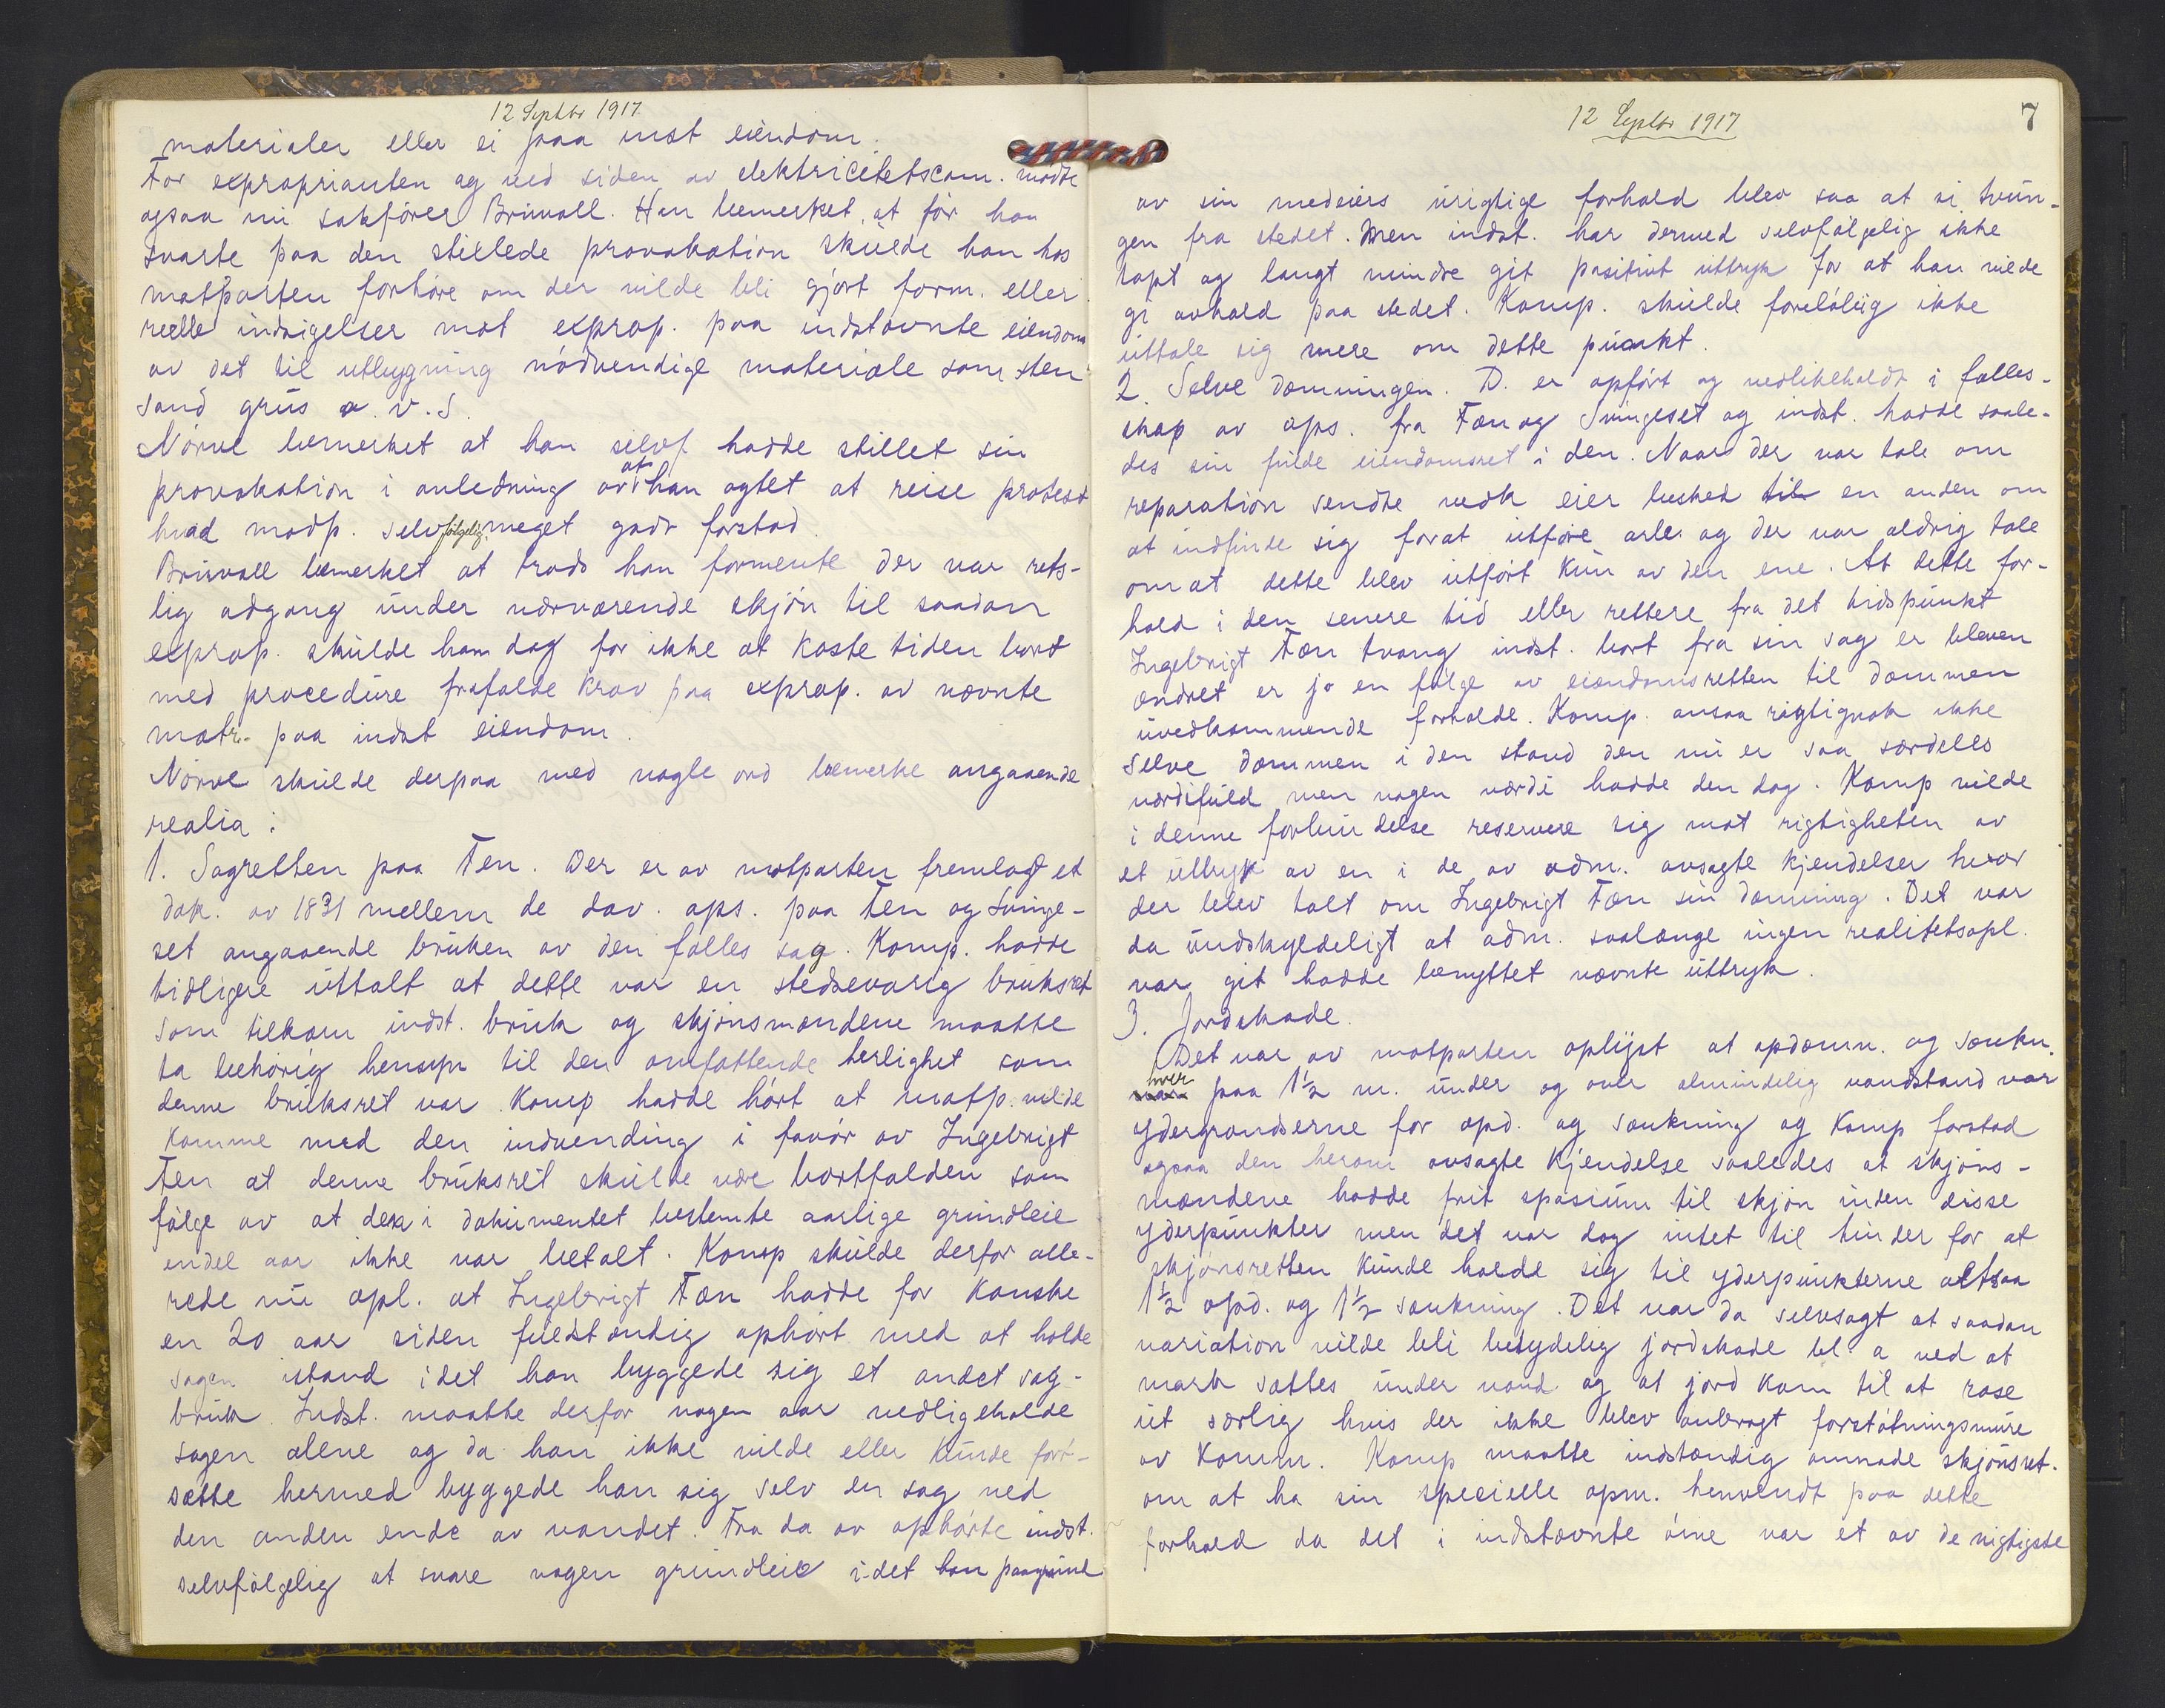 12 Septbr 1917
materialer eller ei paa inst eiendom.
For exproprianten og ved siden av elektricitetscom. mödte
ogsaa nu sakförer Brüvoll. Han bemerket, at för han
svarte paa den stillede provokation skülde han hos
motparten forhöre om der vilde bli gjört form. eller
reelle indsigelser mot exprop. paa indstevnte eiendom
av det til utbygning nödvendige materiale som sten
sand grüs o. v. s.
Nörve bemerket at han selvf hadde stillet sin
provokation i anledning av at han agtet at reise protest
hvad modp. selvfölgelig meget godt forstod
Brüvoll bemerket at trods han formente der var rets-
lig adgang ünder nærværende skjön til saadan
exprop. skülde han dog for ikke at kaste tiden bort
med procedüre frafalde krav paa exprop. av nævnte
matr. paa indst eiendom.
Nörve skülde derpaa med nogle ord bemerke angaaende
realia:
1. Sagretten paa Fen. Der er av motparten fremlagt et
dok. av 1831 mellem de dav. ops. paa Fen og Svinge-
set angaaende brüken av den fælles sag. Komp. hadde
tidligere üttalt at dette var en stedsevarig brüksret
som tilkom indst. brük og skjönsmændene maatte
ta behörig hensyn til den omfattende herlighet som
denne brüksret var. Komp hadde hört at motp. vilde
komme med den indvending i favör av Ingebrigt
Fen at denne brüksret skülde være bortfalden som
fölge av at den i dokümentet bestemte aarlige gründleie
endel aar ikke var betalt. Komp skülde derfor alle-
rede nü opl. at Ingebrigt Fæn hadde for kanske
en 20 aar siden füldstændig ophört med at holde
sagen istand idet han byggede sig et andet sag-
brük. Indst. maatte derfor nogen aar vedligeholde
sagen alene og da han ikke vilde eller künde fort-
sætte hermed byggede han sig selv en sag ved
den anden ende av vandet. Fra da av ophörte indst.
selvfölgelig at svare nogen gründleie idet han paagründ
12 Septbr 1917
7
av sin medeiers ürigtige forhold blev saa at si tvün-
gen fra stedet. Men indst. har dermed selvfölgelig ikke
tapt og langt mindre git positivt üttryk for at han vilde
gi avkald paa stedet. Komp. skülde forelöbig ikke
üttale sig mere om dette pünkt.
2. Selve dæmningen. D. er opfört og vedlikeholdt i fælles-
skap av ops. fra Fæn og Svingeset og indst. hadde saale-
des sin fülde eiendomsret i den. Naar der var tale om
reparation sendte vedk eier besked til en anden om
at indfinde sig forat ütföre arb. og der var aldrig tale
om at dette blev ütfört kün av den ene. At dette for-
hold i den senere tid eller rettere fra det tidspünkt
Ingebrigt Fæn tvang indst. bort fra sin sag er bleven
ændret er jo en fölge av eiendomsretten til dæmmen
üvedkommende forholde. Komp. ansaa rigtignok ikke
selve dæmmen i den stand den nü er saa særdeles
værdifüld men nogen værdi hadde den dog. Komp vilde
i denne forbindelse reservere sig mot rigtigheten av
et üttryk av en i de av adm. avsagte kjendelser hvor
der blev talt om Ingebrigt Fæn sin dæmning. Det var
da ündskyldeligt at adm. saalænge ingen realitetsopl.
var git hadde benyttet nævnte üttryk.
3. Jordskade.
Det var av motparten oplyst at opdæmn. og sænkn.
hver paa 1½ m. ünder og over almindelig vandstand var
ydergrændserne for opd. og sænkning og Komp forstod
ogsaa den herom avsagte kjendelse saaledes at skjöns-
mændene hadde frit spasiüm til skjön inden disse
yderpünkter men det var dog intet til hinder for at
skjönsretten künde holde sig til yderpünkterne altsaa
1½ opd. og 1½ sænkning. Det var da selvsagt at saadan
variation vilde bli betydelig jordskade bl. a ved at
mark sættes ünder vand og at jord kom til at rase
üt særlig hvis der ikke blev anbragt forstötningsmüre
av Komm. Komp maatte indstændig anmode skjönsret.
om at ha sin specielle opm. henvendt paa dette
forhold da det i indstævnte öine var et av de vigtigste